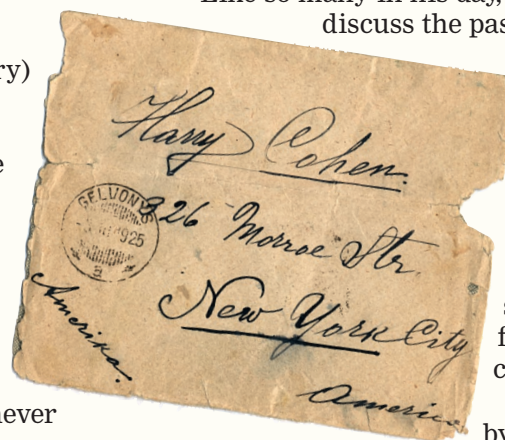 discuss the pas
ry)
Harry Cohen.
GELVONYS
1925
a
326 Monroe Str.
New York City
Amerika.
America
never
by